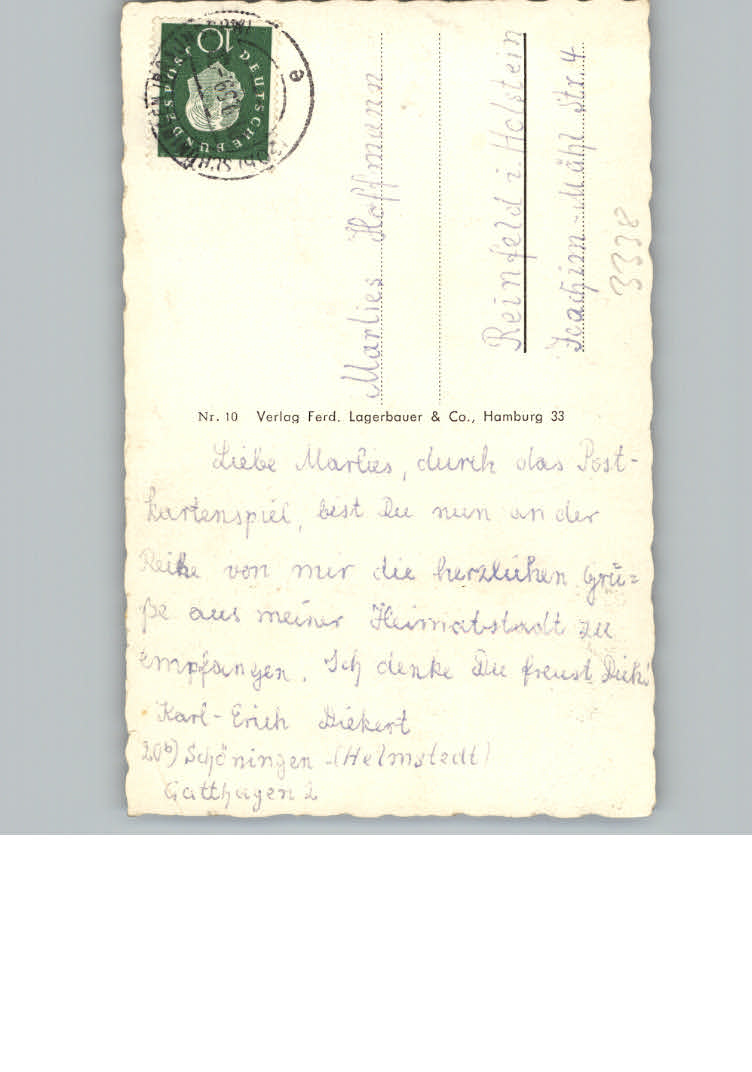 10
DEUTSCHE BUNDESPOST
e
Marlies Hoffmann
Reinfeld i. Holstein
Joachim-Mähl Str. 4
3338
Nr. 10 Verlag Ferd. Lagerbauer & Co., Hamburg 33
Liebe Marlies, durch das Post-
kartenspiel, bist Du nun an der
Reihe von mir die herzlichen Grü=
ße aus meiner Heimatstadt zu
empfangen. Ich denke Du freust Dich!
Karl-Erich Diekert
20b) Schöningen -(Helmstedt)
Gatthagen 2